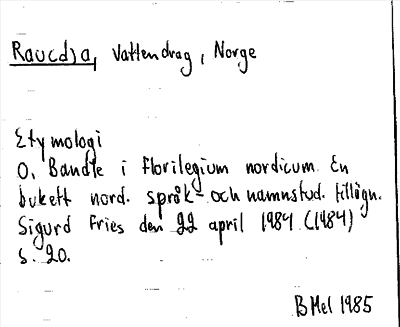 Raucdja, Vattendrag, Norge
Etymologi
O. Bandle i Florilegium nordicum. En
bukett nord. språk- och namnstud. tillägn.
Sigurd Fries den 22 april 1984 (1984)
s. 20.
BMel 1985